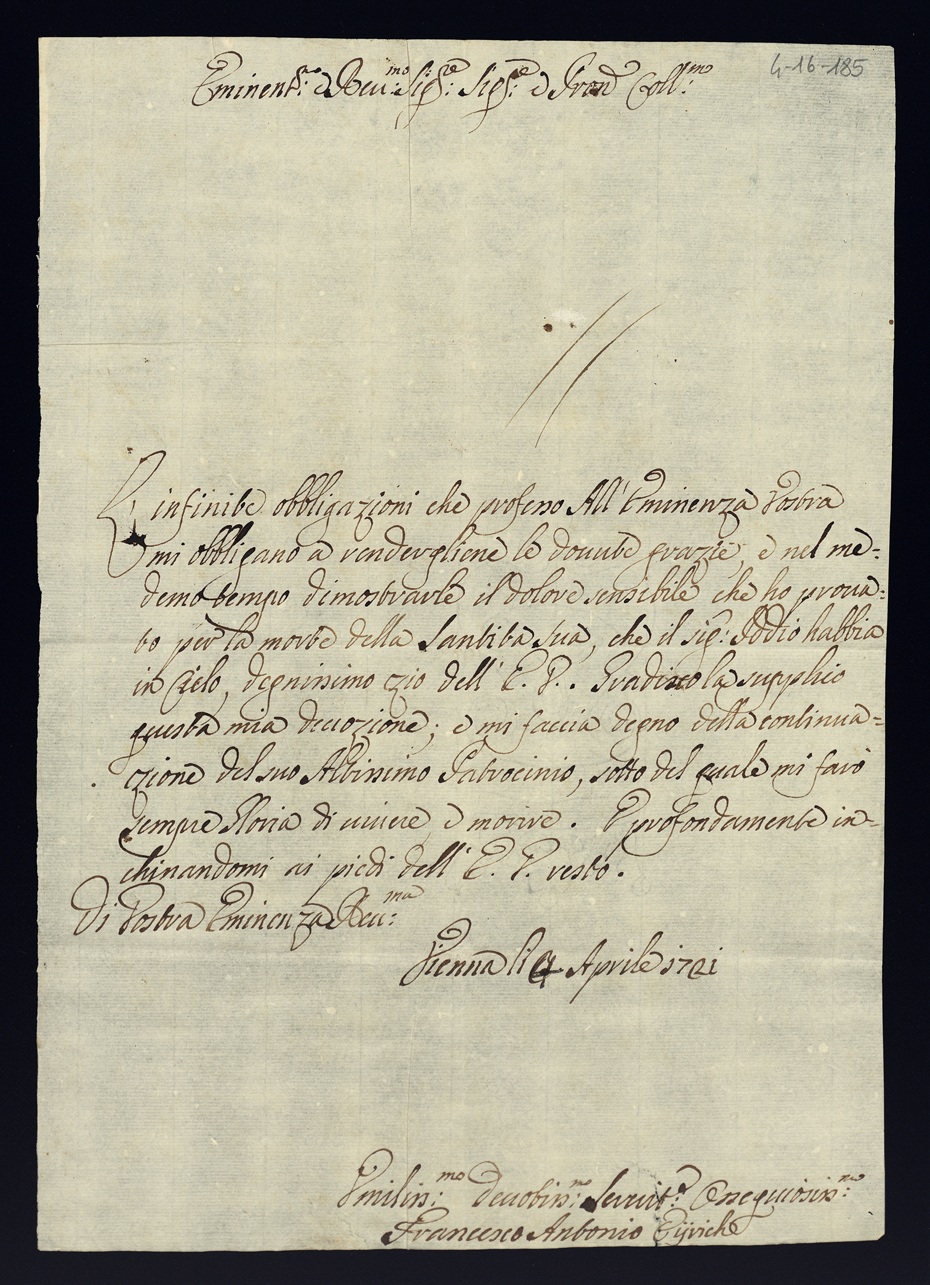 4-16-185
Eminent:mo e Reu:mo Sig:re Sig:re e Pron Coll:mo
L'infinite obbligazioni che professo All'Eminenza Vostra
mi obbligano à rendergliene le douute grazie, e nel me=
demo tempo dimostrarle il dolore sensibile che ho proua=
to per la morte della Santità sua, che il sig: Iddio habbia
in Cielo, degnissimo zio dell'E. V.. Gradisca la supplico
questa mia deuozione; e mi faccia degno della continua=
zione del suo Altissimo Patrocinio, sotto del quale mi farò
sempre Gloria di uiuere, e morire. E profondamente in=
chinandomi ai piedi dell'E. V. resto.
Di Vostra Eminenza Reu:ma
Vienna li 4 Aprile 1721
Vmilis:mo Deuotis:mo Seruit:e Ossequiosis:mo
Francesco Antonio